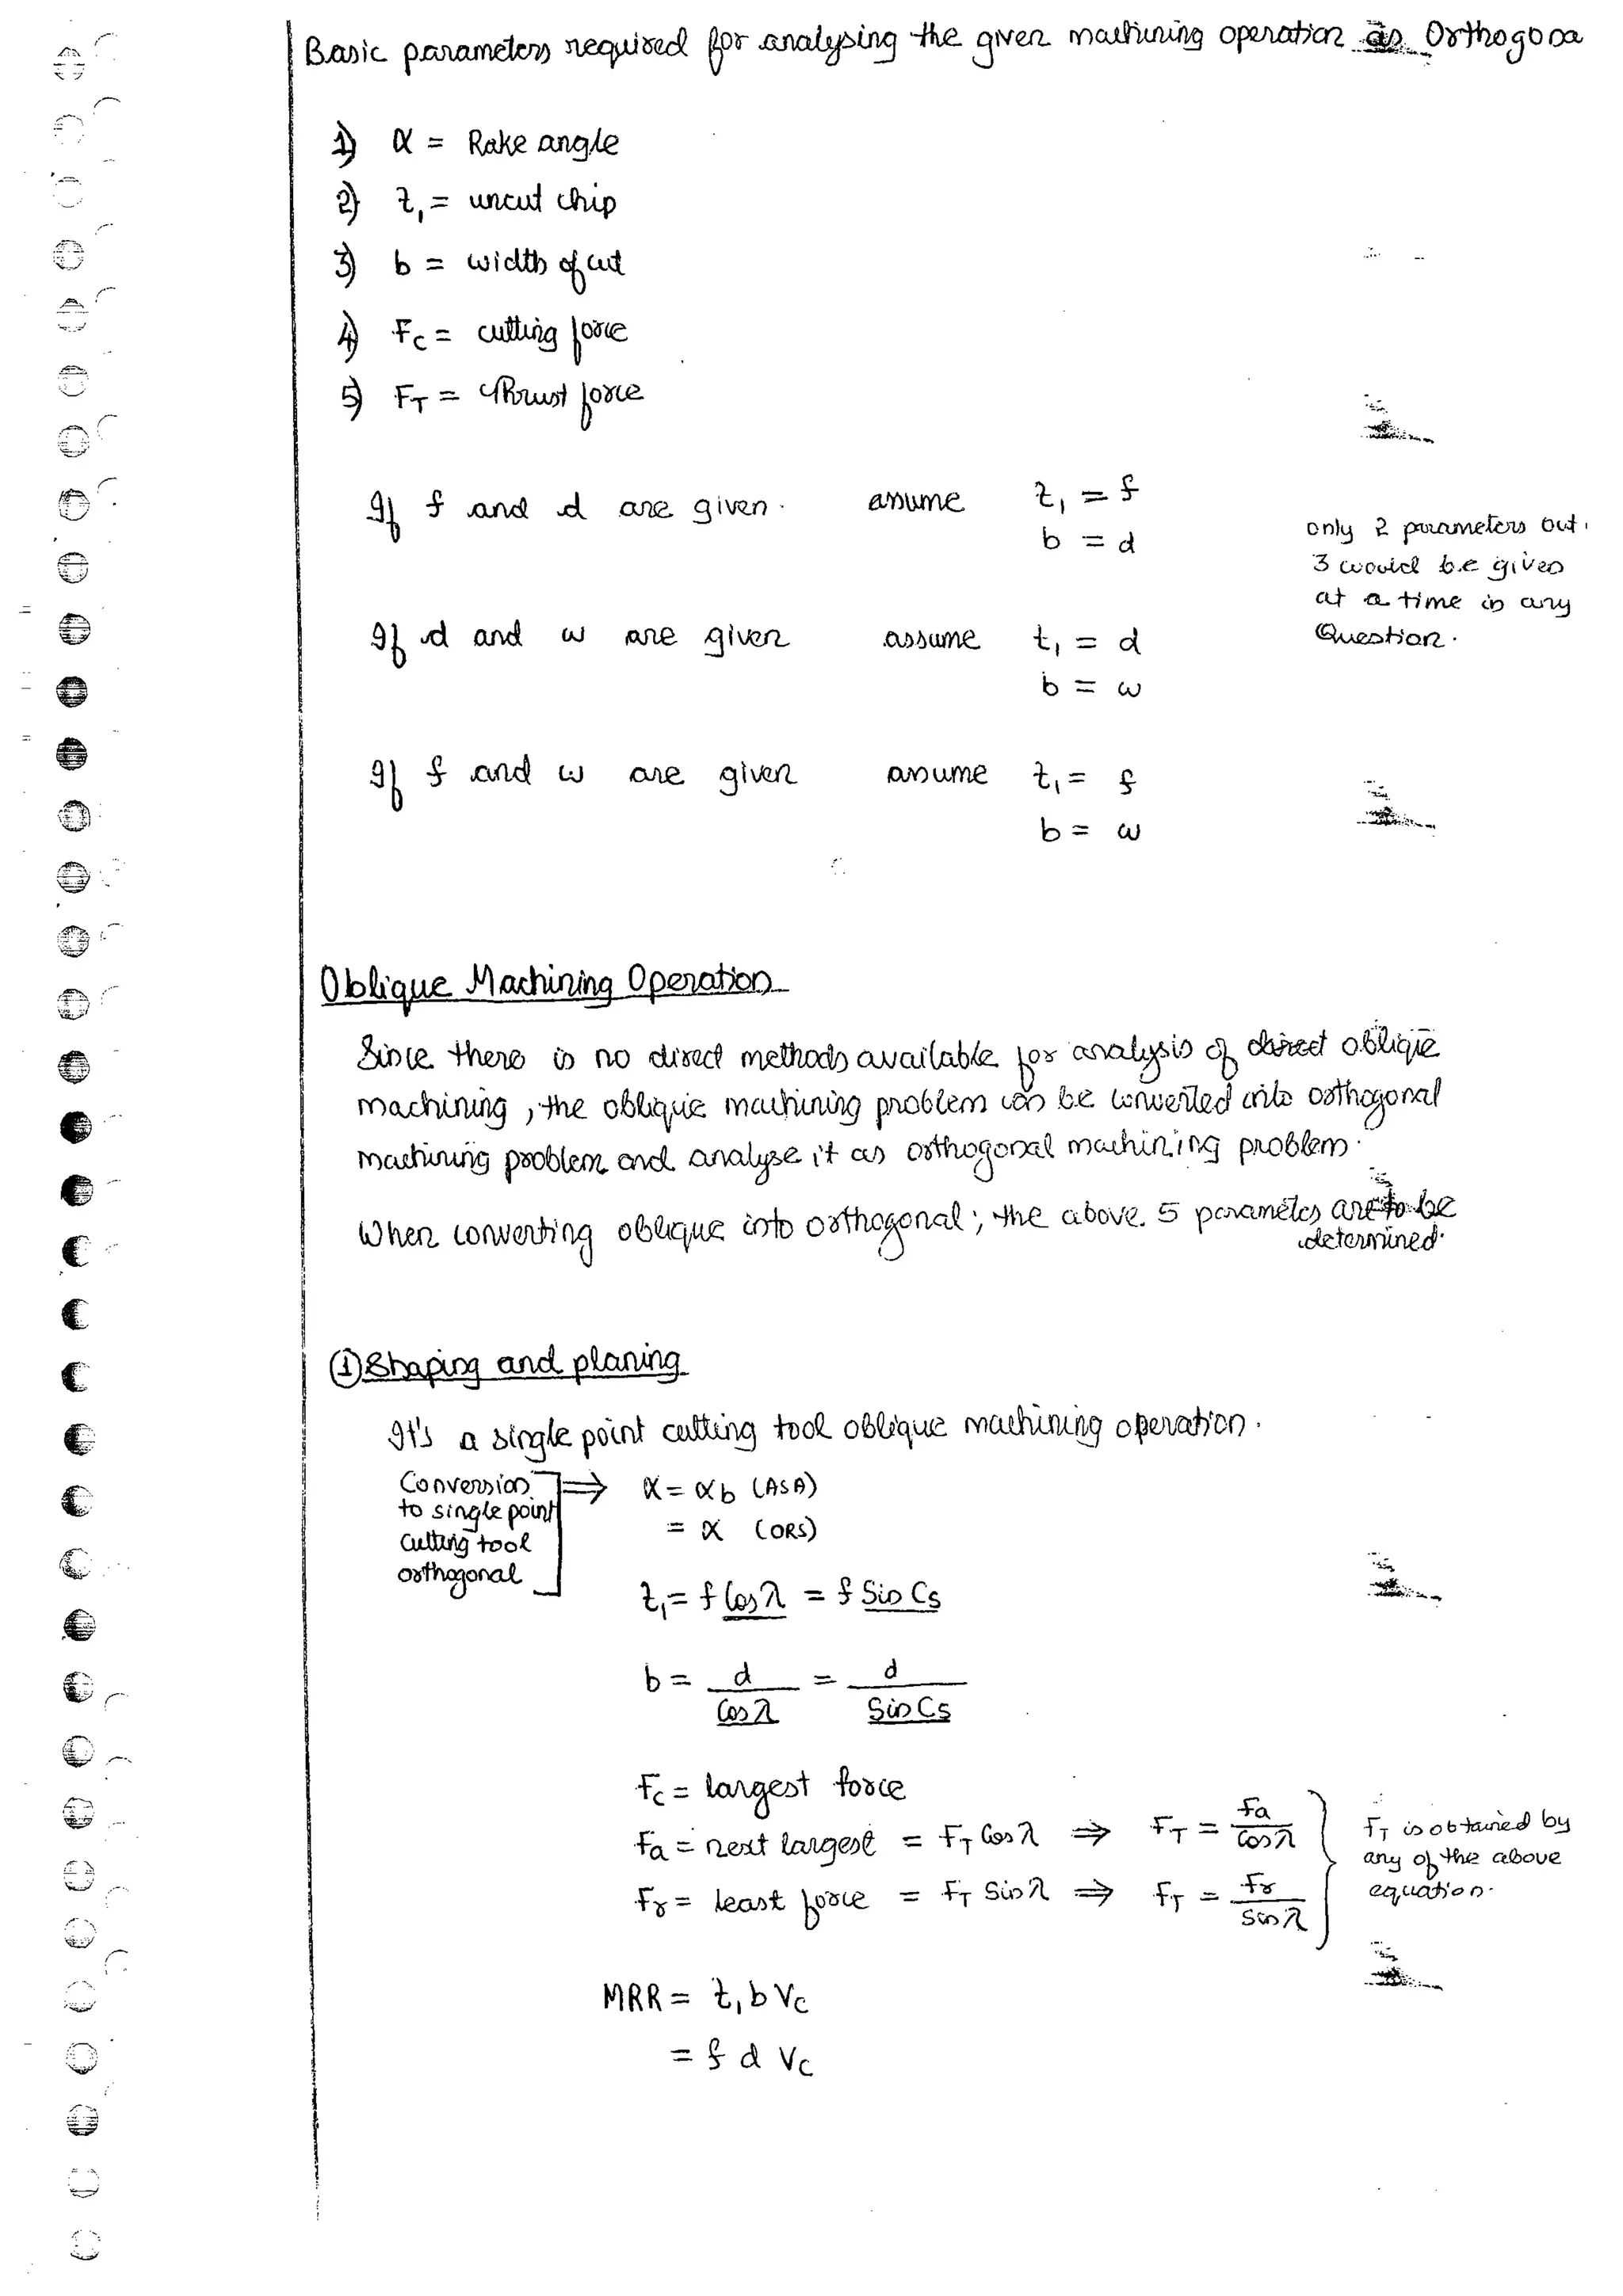 Basic parameters required for analysing the given machining operation as Orthogona
1) α = Rake angle
2) t₁ = uncut chip
3) b = width of cut
4) Fc = cutting force
5) FT = Thrust force
If f and d are given. assume t₁ = f
b = d
only 2 parameters out
3 would be given
at a time in any
Question.
If d and w are given assume t₁ = d
b = w
If f and w are given assume t₁ = f
b = w
Oblique Machining Operation
Since there is no direct methods available for analysis of direct oblique
machining, the oblique machining problem can be converted into orthogonal
machining problem and analyse it as orthogonal machining problem.
When converting oblique into orthogonal; the above 5 parametes are to be
determined.
① Shaping and planing
It's a single point cutting tool oblique machining operation.
Conversion
to single point
cutting tool
orthogonal
⇒ α = αb (ASA)
= α (ORS)
t₁ = f Cos λ = f Sin Cs
b = d / Cos λ = d / Sin Cs
Fc = largest force
Fa = next largest = FT Cos λ ⇒ FT = Fa / Cos λ
Fr = least force = FT Sin λ ⇒ FT = Fr / Sin λ
FT is obtained by
any of the above
equation.
MRR = t₁ b Vc
= f d Vc